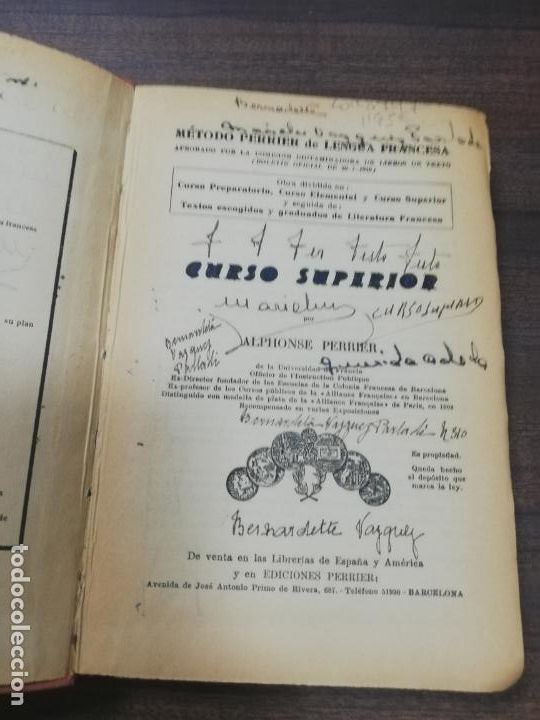 Bernadette
MÉTODO PERRIER de LENGUA FRANCESA
APROBADO POR LA COMISION DICTAMINADORA DE LIBROS DE TEXTO
Obra dividida en:
Curso Preparatorio, Curso Elemental y Curso Superior
y seguida de:
Textos escogidos y graduados de Literatura Francesa
CURSO SUPERIOR
CURSO SUPERIOR
por
ALPHONSE PERRIER
Bernardeta
Vazquez
Parladé
querida
de la Universidad de Francia
Officier de l'Instruction Publique
Ex-Director fundador de las Escuelas de la Colonia Francesa de Barcelona
Ex-profesor de los Cursos públicos de la «Alliance Française» en Barcelona
Distinguido con medalla de plata de la «Alliance Française» de Paris, en 1908
Recompensado en varias Exposiciones
Bernardeta Vazquez Parladé N 310
Es propiedad.
Queda hecho
el depósito que
marca la ley.
Bernardette Vazquez
De venta en las Librerías de España y América
y en EDICIONES PERRIER:
Avenida de José Antonio Primo de Rivera, 687. - Teléfono 51930 - BARCELONA
francesa
su plan
de
todocoleccion